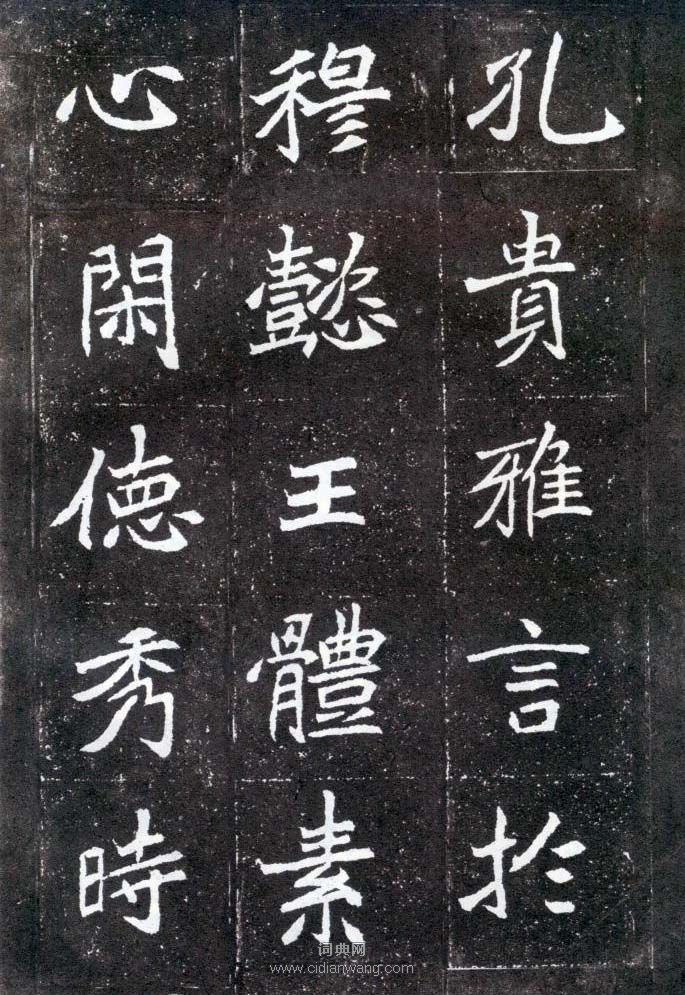 孔貴雅言於
穆懿王體素
心閑德秀時
词典网
www.cidianwang.com